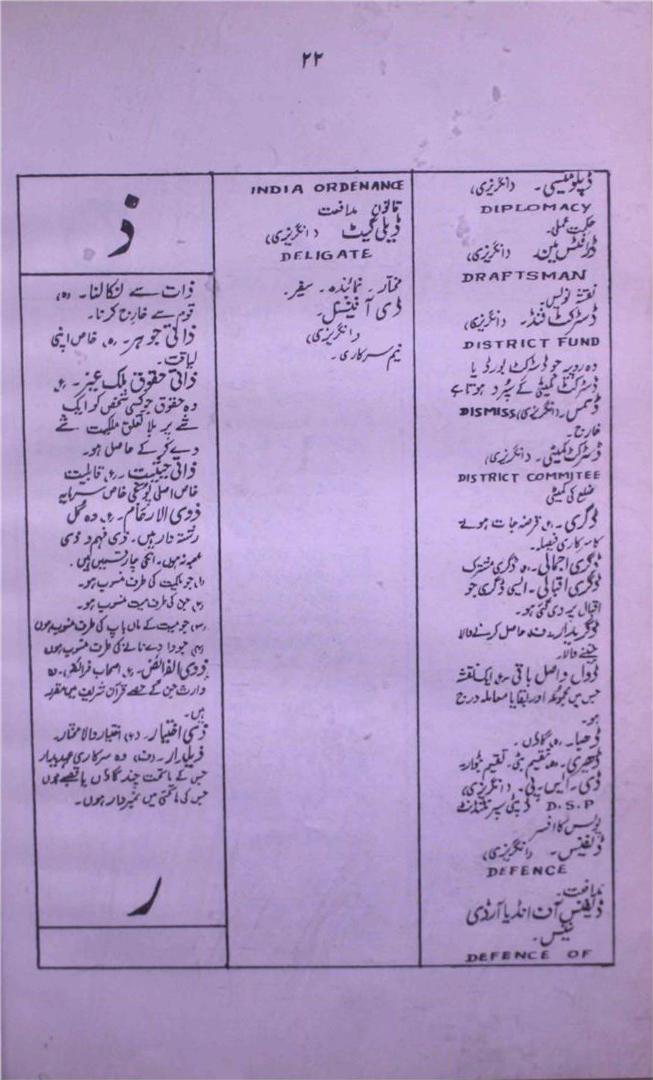 ۲۲
ڈپلومیسی۔ (انگریزی)
DIPLOMACY
حکمت عملی۔
ڈرافٹس مین۔ (انگریزی)
DRAFTSMAN
نقشہ نویس۔
ڈسٹرکٹ فنڈ۔ (انگریزی)
DISTRICT FUND
وہ روپیہ جو ڈسٹرکٹ بورڈ یا
ڈسٹرکٹ کمیٹی کے سپرد ہوتا ہے
ڈسمس۔ (انگریزی) DISMISS
خارج۔
ڈسٹرکٹ کمیٹی۔ (انگریزی)
DISTRICT COMMITEE
ضلع کی کمیٹی
ڈگری۔ قرضہ جات ہونے
کا سرکاری فیصلہ۔
ڈگری اجمالی۔ ڈگری مشترک
ڈگری اقبالی۔ ایسی ڈگری جو
اقبال پہ دی گئی ہو۔
ڈگریدار۔ حاصل کرنے والا
جیتنے والا۔
ڈول واصل باقی۔ ایک نقشہ
جس میں اور بقایا معاملہ درج
ہو۔
ڈھیا۔
ڈھیری۔ تقسیم بٹوارہ
ڈی۔ ایس۔ پی۔ (انگریزی)
D.S.P ڈپٹی سپرنٹنڈنٹ
پولس کا افسر
ڈیفینس۔ (انگریزی)
DEFENCE
مدافعت۔
ڈیفینس آف انڈیا آرڈی
نینس۔
DEFENCE OF
INDIA ORDENANCE
قانون مدافعت
ڈیلی گیٹ (انگریزی)
DELIGATE
مختار۔ نمائندہ۔ سفیر۔
ڈی آفیشنل۔
(انگریزی)
نیم سرکاری۔
ذ
ذات سے نکالنا۔ (ہ)
قوم سے خارج کرنا۔
ذاتی جوہر۔ خاص اپنی
لیاقت۔
ذاتی حقوق ملک غیر۔ (ع)
وہ حقوق جو کسی شخص کو ایک
شے پر بلا تعلق ملکیت شے
دے کر کے حاصل ہو۔
ذاتی حیثیت۔ (ع) قابلیت
خاص اصلی پونجی خاص سرمایہ
ذوی الارحام۔ (ع) وہ کل
رشتہ دار ہیں۔ ذی فہم نہ ذوی
عصبہ نہ ہوں۔ انکی چار قسمیں ہیں۔
(۱) جو میت کی طرف منسوب ہو۔
(۲) جن کی طرف میت منسوب ہو۔
(۳) جو میت کے ماں باپ کی طرف منسوب ہوں
(۴) جو دادے نانے کی طرف منسوب ہوں
ذوی الفرائض۔ (ع) اصحاب فرائض۔ وہ
وارث جن کے حصے قرآن شریف میں مقرر
ہیں۔
ذی اختیار۔ (ع) اختیار والا مختار۔
ذیلدار۔ (ف) وہ سرکاری عہدیدار
جس کے ماتحت چند گاؤں یا قصبے ہوں
جس کی ماتحتی میں نمبردار ہوں۔
ر